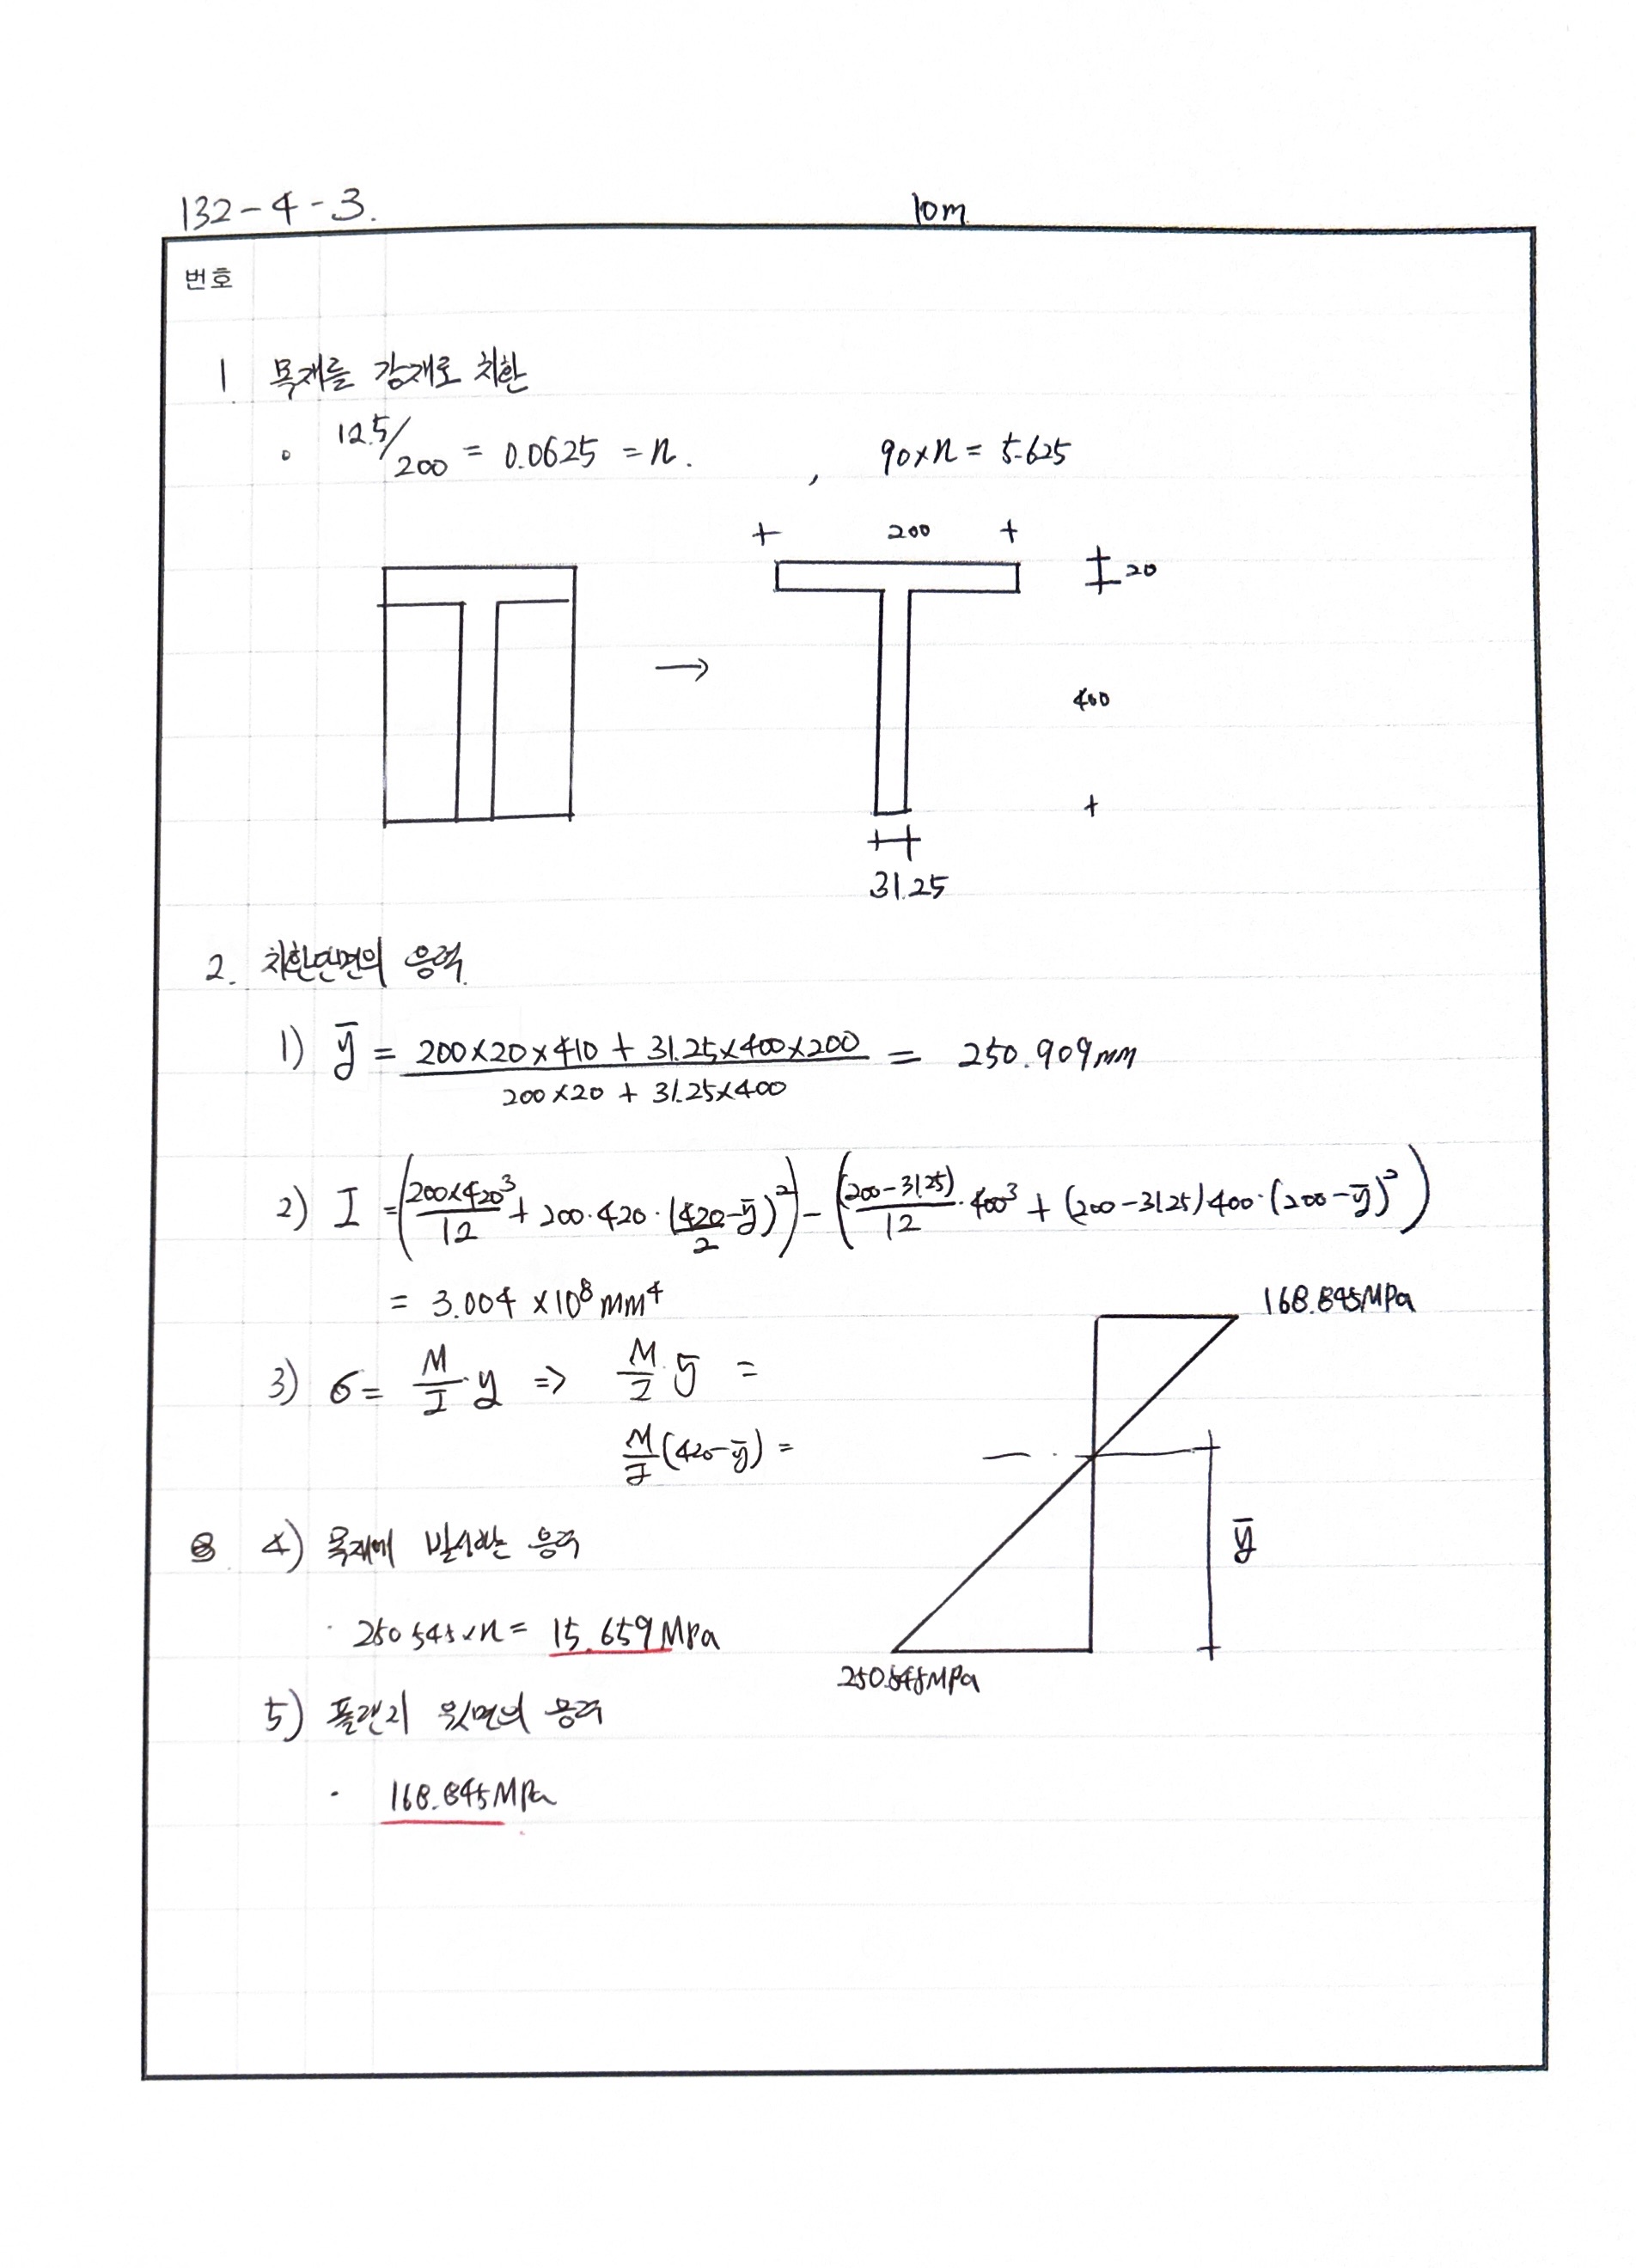 132-4-3.
10m
번호
1. 목재를 강재로 치환
∘ 12.5/200 = 0.0625 = n. , 90×n = 5.625
200
20
400
31.25
2. 치환단면의 응력.
1) ȳ = (200×20×410 + 31.25×400×200) / (200×20 + 31.25×400) = 250.909mm
2) I = (200×420³/12 + 200·420·(420/2-ȳ)²) - ((200-31.25)/12·400³ + (200-31.25)400·(200-ȳ)²)
= 3.004 ×10⁸ mm⁴
168.845MPa
3) σ = M/I·y ⇒ M/I·ȳ =
M/I(420-ȳ) =
ȳ
4) 목재에 발생하는 응력
· 250.545×n = 15.659MPa
250.545MPa
5) 플랜지 윗면의 응력
· 168.845MPa